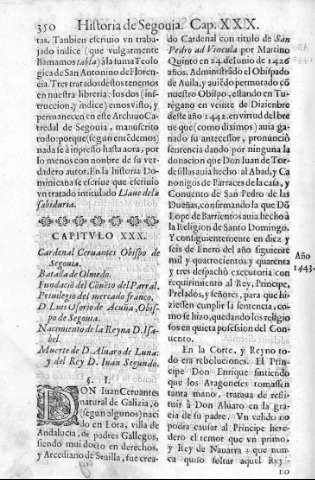 350 Historia de Segouia. Cap. XXX.
tas. Tanbien escriuio vn traba-
jado indice (que vulgarmente
llamamos tabla) à la suma Teolo
gica de San Antonino de Floren-
cia. Tres tratados destos tenemos
en nuestra libreria: los dos (ins-
truccion, y indice) emos visto, y
permanecen en este Archiuo Ca-
tredal de Segouia, manuscrito
todo: porque (segun entēdemos)
nada se à inpreso hasta aora, por
lo menos con nonbre de su ver-
dadero autor. En la Historia Do-
minica se escriue que escriuio
vn tratado intitulado Llaue de la
sabiduria.
CAPITVLO XXX.
Cardenal Ceruantes Obispo de
Segouia.
Batalla de Olmedo.
Fundaciō del Cōuēto del Parral.
Priuilegio del mercado franco.
D. Luis Osorio de Acuña, Obis-
po de Segouia.
Nacimiento de la Reyna D. Isa-
bel.
Muerte de D. Aluaro de Luna:
y del Rey D. Iuan Segundo.
§. I.
DON Iuan Ceruantes
natural de Galizia, ò
segun algunos) naci
do en Lora, villa de
Andalucia, de padres Gallegos,
siendo mui docto en derechos,
y Arcediano de Seuilla, fue crea-
do Cardenal con titulo de San
Pedro ad Vincula por Martino
Quinto en 24. de Iunio de 1426
años. Administrādo el Obispado
de Auila, y auiēdo permutado cō
nuestro Obispo, estando en Tu-
regano en veinte de Diziembre
deste año 1442. en virtud de Ibre
ue que (como diximos) auia ga-
nado su antecessor, pronunció
sentencia dando por ninguna la
donacion que Don Iuan de Tor-
desillas auia hecho al Abad, y Ca
nonigos de Parraces de la casa, y
Conuento de San Pedro de las
Dueñas, confirmando la que Dō
Lope de Barrientos auia hecho à
la Religion de Santo Domingo.
Y consiguientemente en diez y
seis de Enero del año siguiente
mil y quatrocientos y quarenta
y tres despachò executoria con
requirimiento al Rey, Principe,
Prelados, y señores, para que hi-
ziessen cumplir la sentencia, co-
mo se hizo, quedando los religio
sos en quieta posesion del Con-
uento.
Año
1443.
En la Corte, y Reyno to-
do era reboluciones. El Prin-
cipe Don Enrique sintiendo
que los Aragoneses tomassen
tanta mano, trataua de resti-
tuir à Don Aluaro en la gra-
cia de su padre. Vn valido no
podia causar al Principe here-
dero el temor que vn primo,
y Rey de Nauarra: que nun-
ca quiso soltar aquel Rey-
no